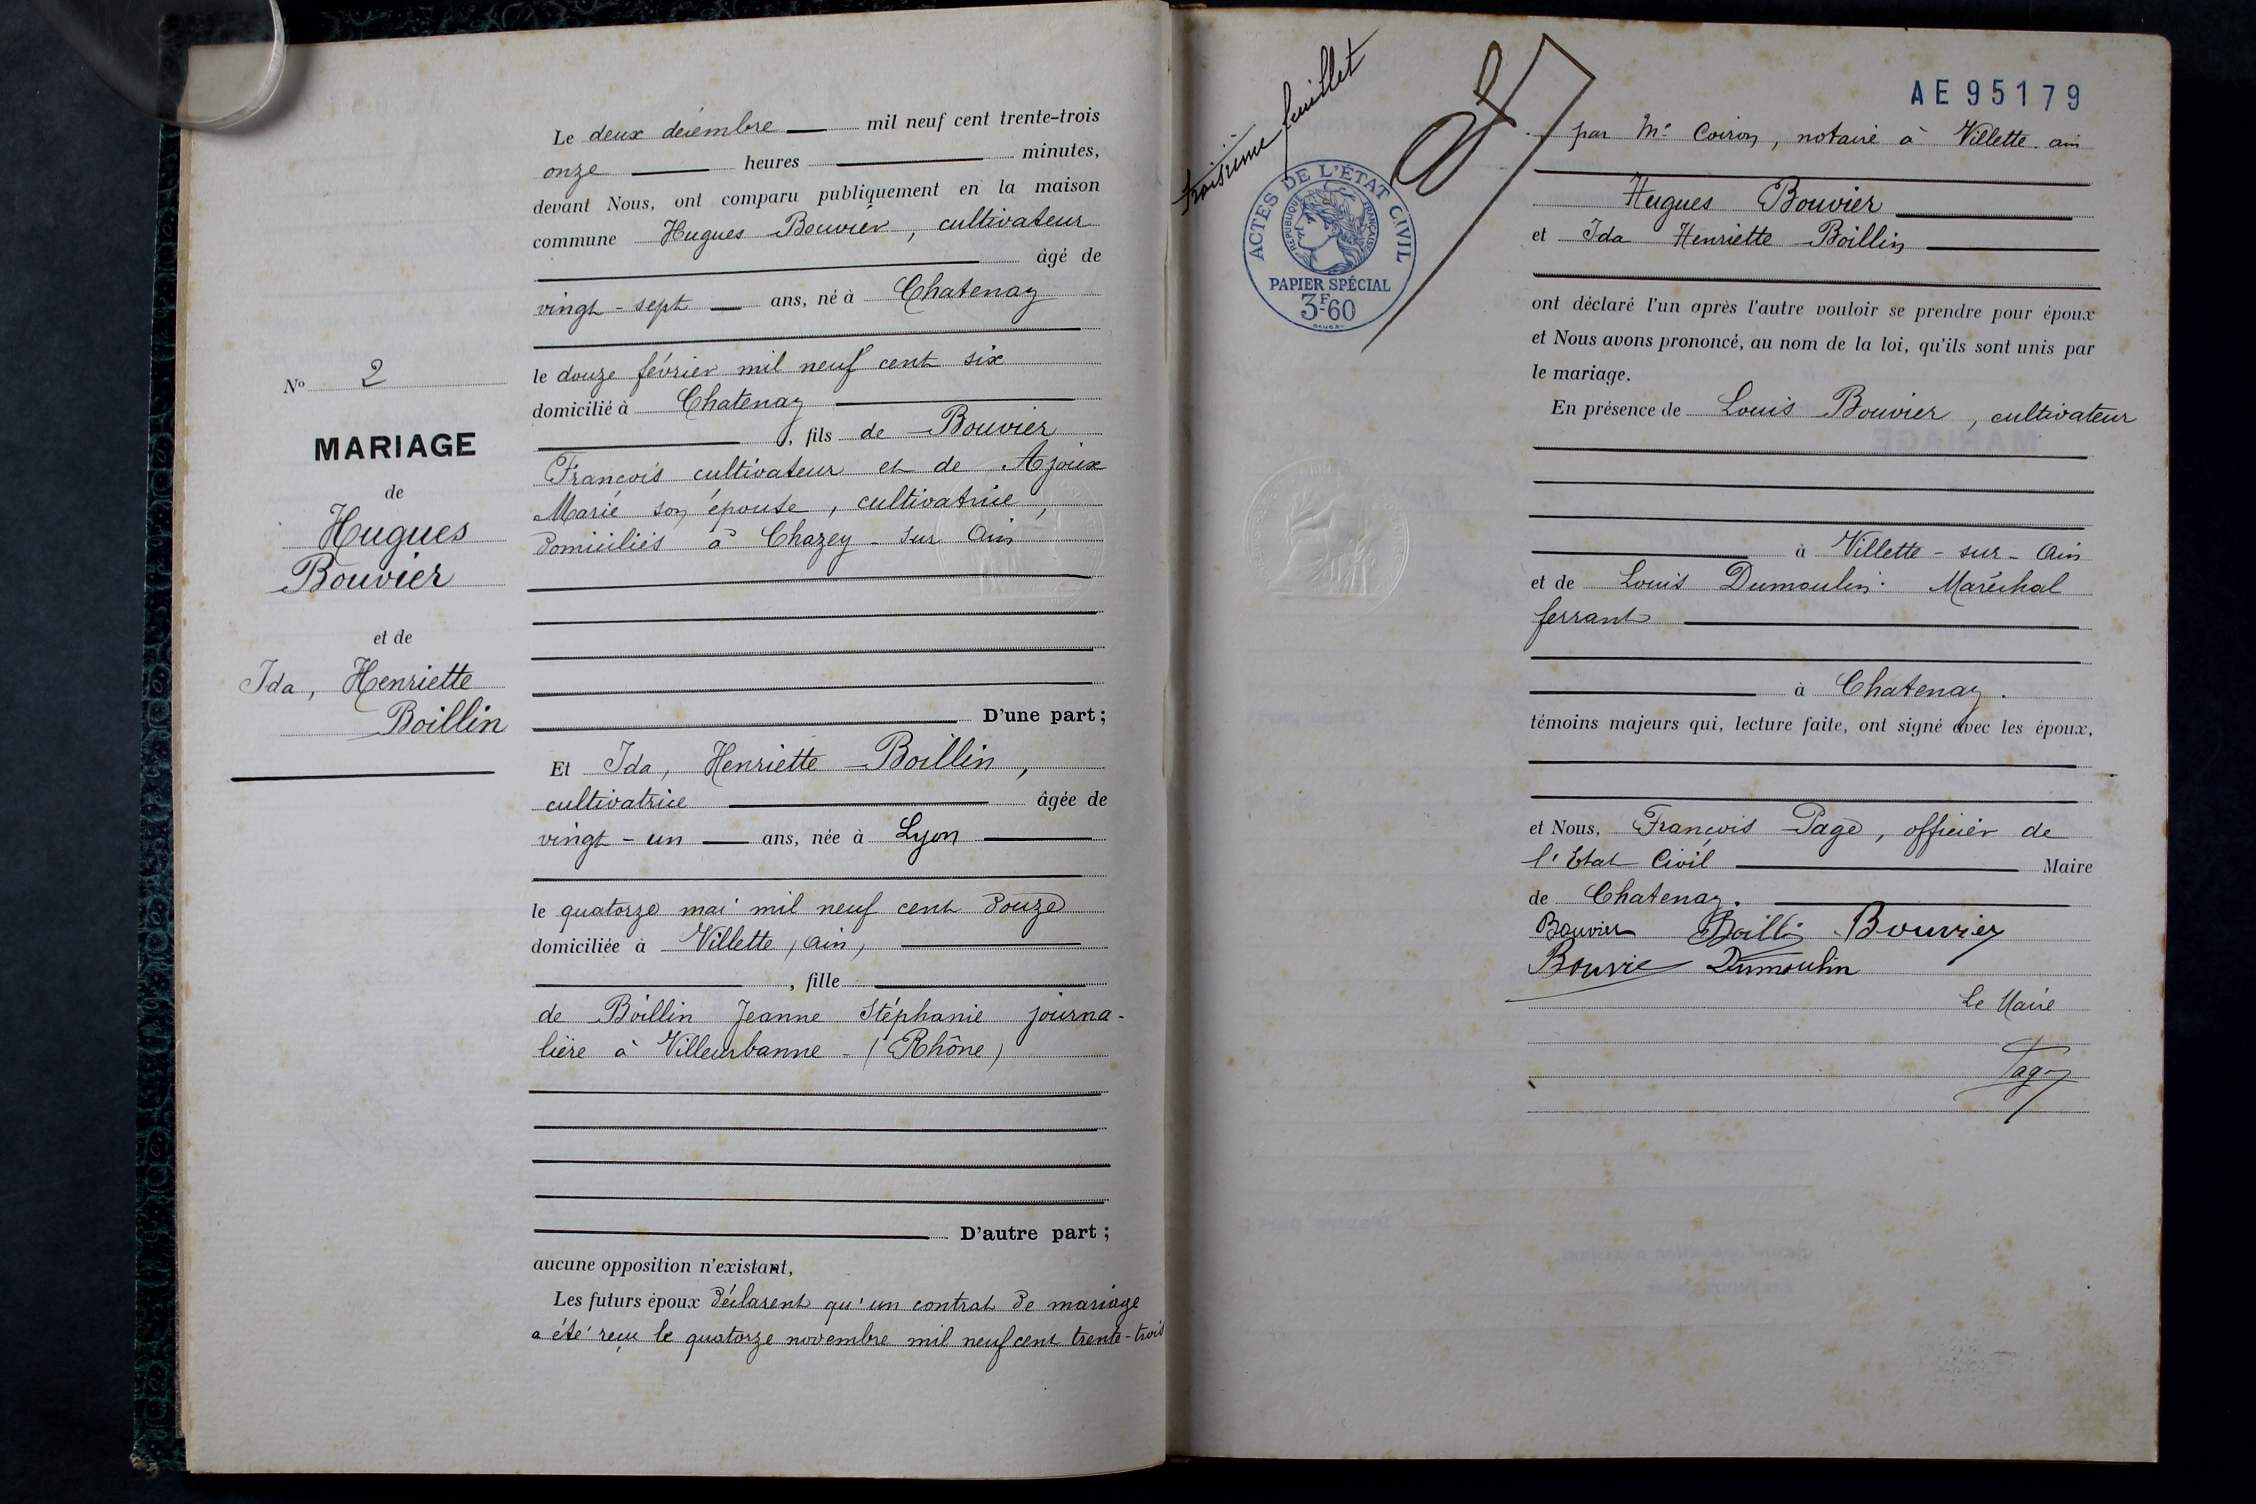 Le deux décembre mil neuf cent trente-trois
onze heures minutes,
devant Nous, ont comparu publiquement en la maison
commune Hugues Bouvier, cultivateur
âgé de
vingt-sept ans, né à Chatenay
le douze février mil neuf cent six
domicilié à Chatenay
, fils de Bouvier
François cultivateur et de Ajoux
Marie son épouse, cultivatrice,
domiciliés à Chazey-sur Ain
D'une part;
Nº 2
MARIAGE
de
Hugues
Bouvier
et de
Ida, Henriette
Boillin
Et Ida, Henriette Boillin,
cultivatrice âgée de
vingt-un ans, née à Lyon
le quatorze mai mil neuf cent douze
domiciliée à Villette, Ain,
, fille
de Boillin Jeanne Stéphanie journa-
lière à Villeurbanne - (Rhône)
D'autre part;
aucune opposition n'existant,
Les futurs époux déclarent qu'un contrat de mariage
a été reçu le quatorze novembre mil neuf cent trente-trois
troisième feuillet
ACTES DE L'ÉTAT CIVIL
RÉPUBLIQUE FRANÇAISE
PAPIER SPÉCIAL
3F60
AE 95179
par Me Coiron, notaire à Villette. ain
Hugues Bouvier
et Ida Henriette Boillin
ont déclaré l'un après l'autre vouloir se prendre pour époux
et Nous avons prononcé, au nom de la loi, qu'ils sont unis par
le mariage.
En présence de Louis Bouvier, cultivateur
à Villette-sur-Ain
et de Louis Dumoulin. Maréchal
ferrant
à Chatenay.
témoins majeurs qui, lecture faite, ont signé avec les époux,
et Nous, François Page, officier de
l'Etat Civil Maire
de Chatenay.
Bouvier Boillin Bouvier
Bouvie Dumoulin
Le Maire
Page